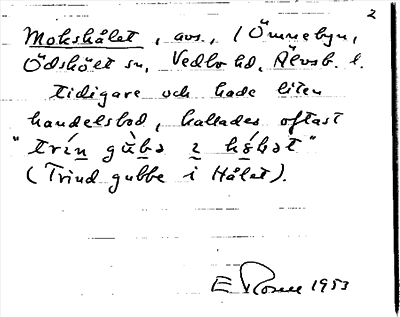 2
Mokshålet, avs., i Ömmebyn,
Ödskölt sn, Vedbo hd, Älvsb. l.
tidigare och hade liten
handelsbod, kallades oftast
"trin gùbə i hó̱lət"
(Trind gubbe i Hålet).
E Rosell 1953